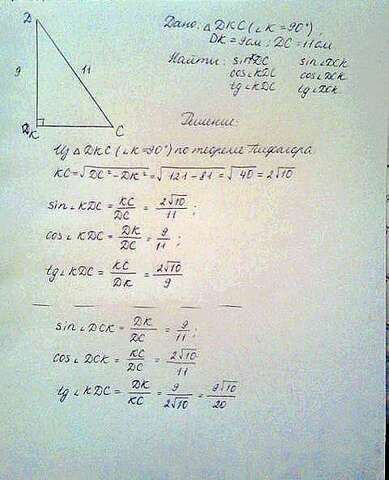 D
9
11
K
C
Дано: △DKC (∠K = 90°),
DK = 9см; DC = 11см
Найти: sin∠KDC sin∠DCK
cos∠KDC cos∠DCK
tg∠KDC tg∠DCK
Решение:
Из △DKC (∠K=90°) по теореме Пифагора
KC = √DC² − DK² = √121 − 81 = √40 = 2√10
sin∠KDC = KC/DC = 2√10/11;
cos∠KDC = DK/DC = 9/11;
tg∠KDC = KC/DK = 2√10/9
sin∠DCK = DK/DC = 9/11;
cos∠DCK = KC/DC = 2√10/11
tg∠KDC = DK/KC = 9/2√10 = 9√10/20